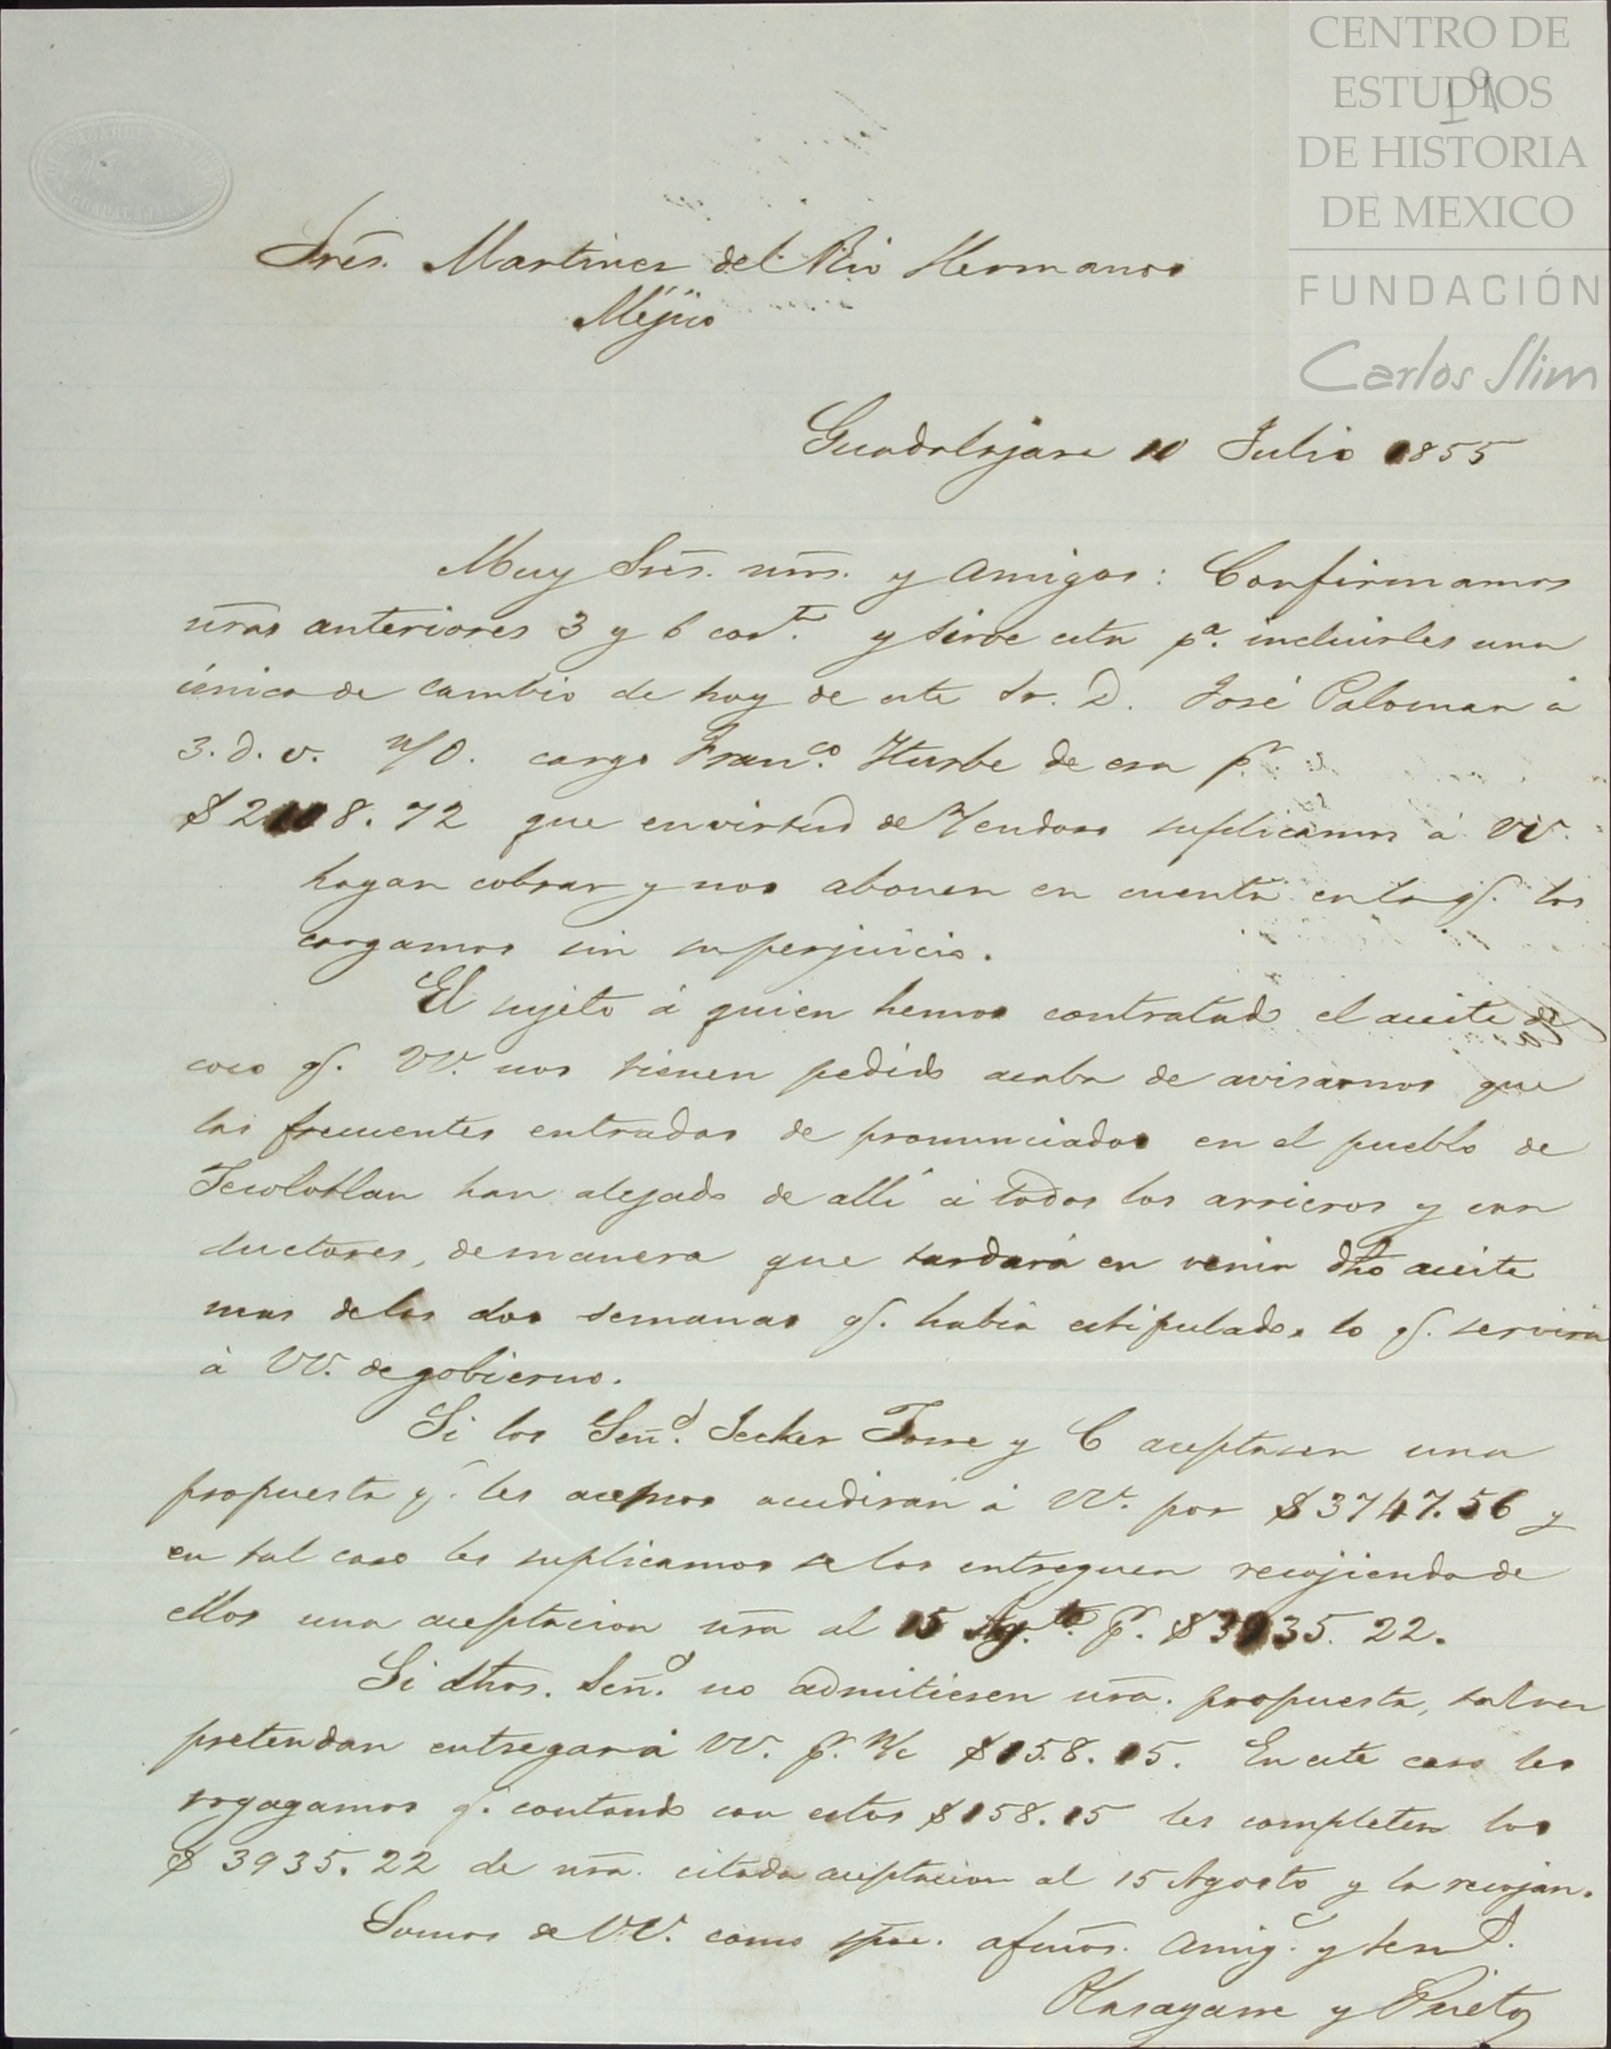 CENTRO DE
ESTUDIOS
DE HISTORIA
DE MEXICO
FUNDACIÓN
Carlos Slim
19
GUADALAJARA
Sres. Martinez del Rio Hermanos
Méjico
Guadalajara 10 Julio 1855
Muy Sres. nros. y amigos: Confirmamos
nras anteriores 3 y 6 cor.te y sirve esta p.a incluirles una
única de cambio de hoy de este Sr. D. José Palomar á
3. d. v. n/O. cargo Fran.co Yturbe de esa p.r
$2108.72 que en virtud de /endoso suplicamos á VV.
hagan cobrar y nos abonen en cuenta en la q. los
cargamos sin su perjuicio.
El sujeto á quien hemos contratado el aceite de
coco q. VV. nos tienen pedido acaba de avisarnos que
las frecuentes entradas de pronunciados en el pueblo de
Tecolotlan han alejado de allí á todos los arrieros y con
ductores, de manera que tardará en venir dho aceite
mas de las dos semanas q. habia estipulado, lo q. servirá
á VV. de gobierno.
Si los Señ.s Jecker Torre y C aceptasen una
propuesta q. les acemos acudiran á VV. por $3747.56 y
en tal caso les suplicamos se los entreguen recojiendo de
ellos una aceptacion nra al 15 Ag.to p.r $3935.22.
Si dhos. Señ.s no admitiesen nra. propuesta, talvez
pretendan entregar á VV. p.r n/c $158.15. En este caso les
rogagamos q. contando con estos $158.15 les completen los
$3935.22 de nra. citada aceptacion al 15 Agosto y la recojan.
Somos de VV. como spre. afmos. amig.s y serv.s
Olasagarre y Prieto